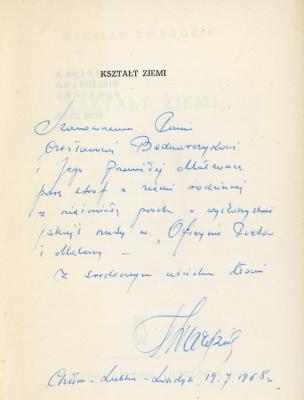 KSZTAŁT ZIEMI
Szanownemu Panu
Czesławowi Bednarczykowi
i Jego Przemiłej Małżonce
parę strof z ziemi rodzinnej
z nieśmiałą prośbą o wydrukowanie
jakiejś mety w „Oficynie Poetów
i Malarzy –
Z serdecznym uściskiem dłoni
Twardzik
Chełm – Lublin – Londyn 19.7.1968 r.